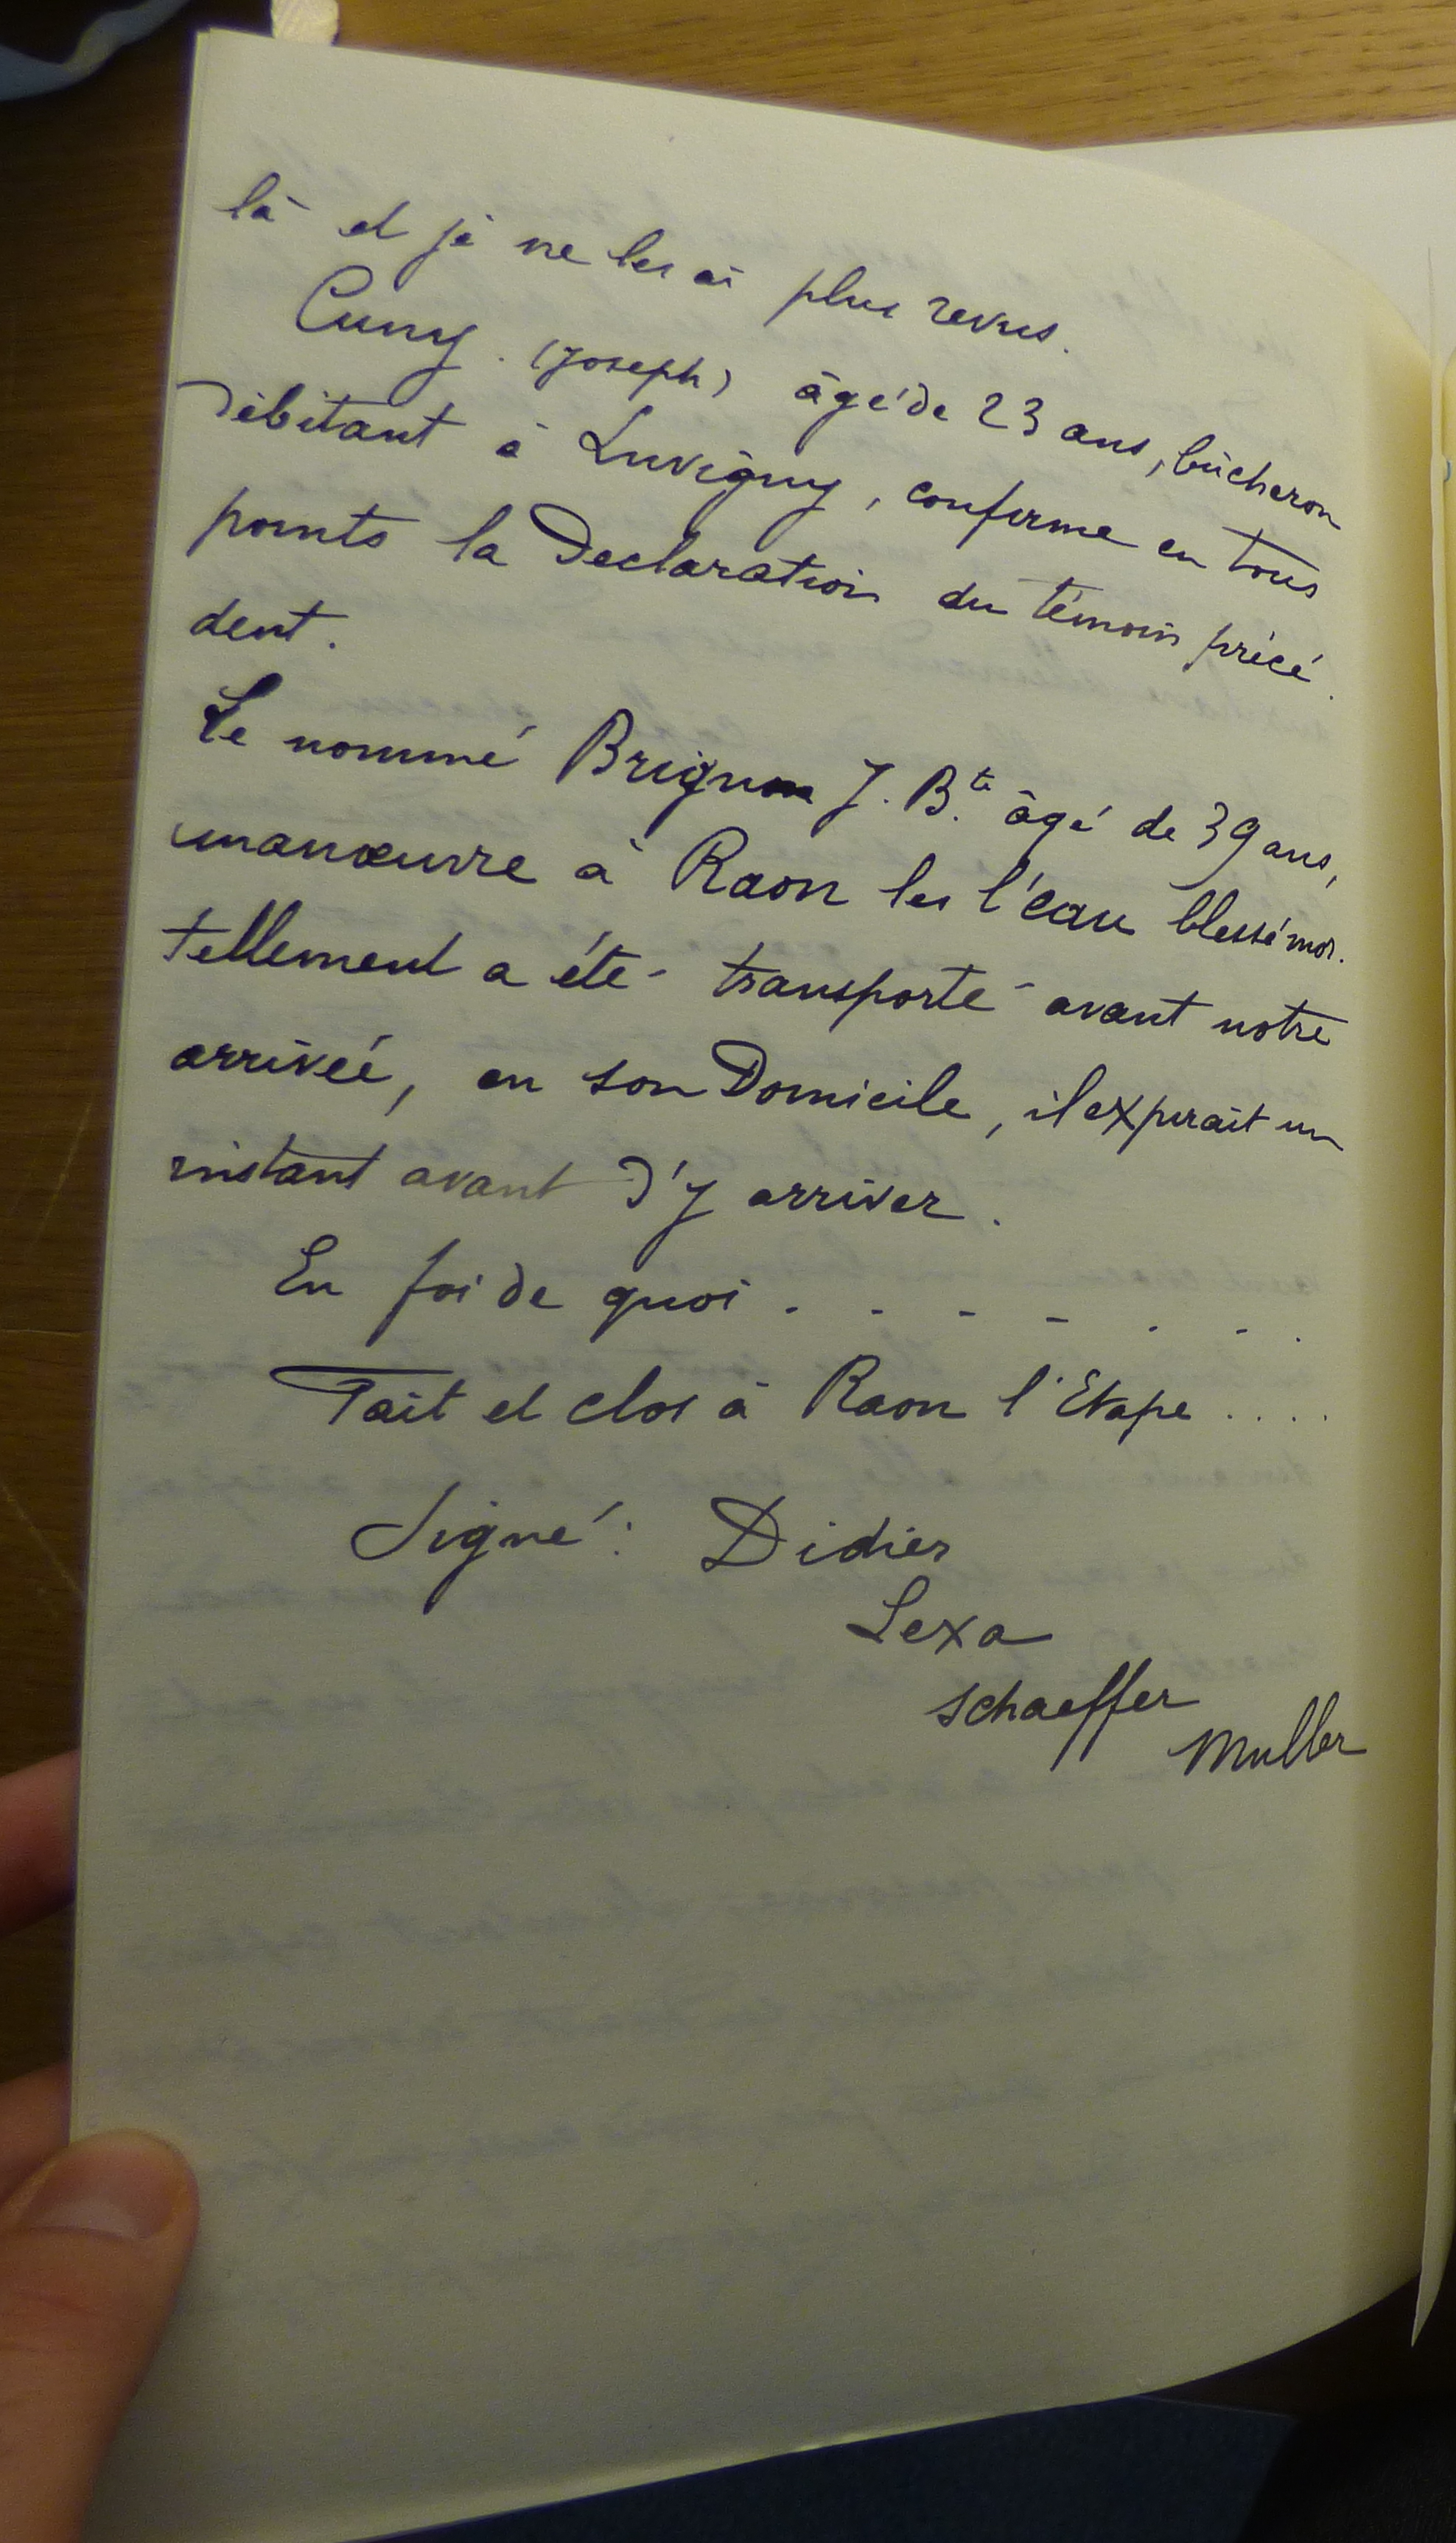 là et je ne les ai plus revus.
Cuny. (Joseph) âgé de 23 ans, bûcheron
débitant à Luvigny, confirme en tous
points la Déclaration du témoin précé.
dent.
Le nommé Brignon J. B.te âgé de 39 ans,
manœuvre à Raon les l'eau blessé mor.
tellement a été transporté avant notre
arrivée, en son Domicile, il expirait un
instant avant d'y arriver.
En foi de quoi . . . . . . .
Fait et clos à Raon l'Etape ....
Signé : Didier
Lexa
Schaeffer
Muller